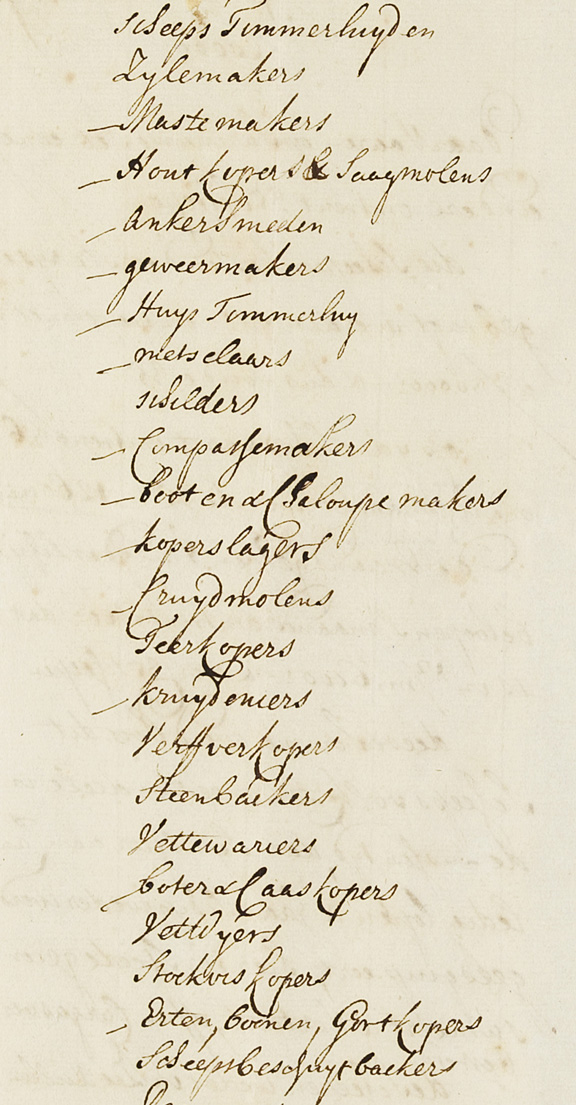 scheeps Timmerluyden
Zylemakers
Mastemakers
Houtkopers & Saagmolens
ankersmeden
geweermakers
Huys Timmerluy
metselaars
schilders
Compassemakers
boot en & Chaloupe makers
koperslagers
Cruydmolens
Teerkopers
kruydeniers
Verffverkopers
Steenbackers
Vettewariers
boter & Caaskopers
Stockviskopers
Erten, boonen, Gortkopers
Scheepsbesquytbackers